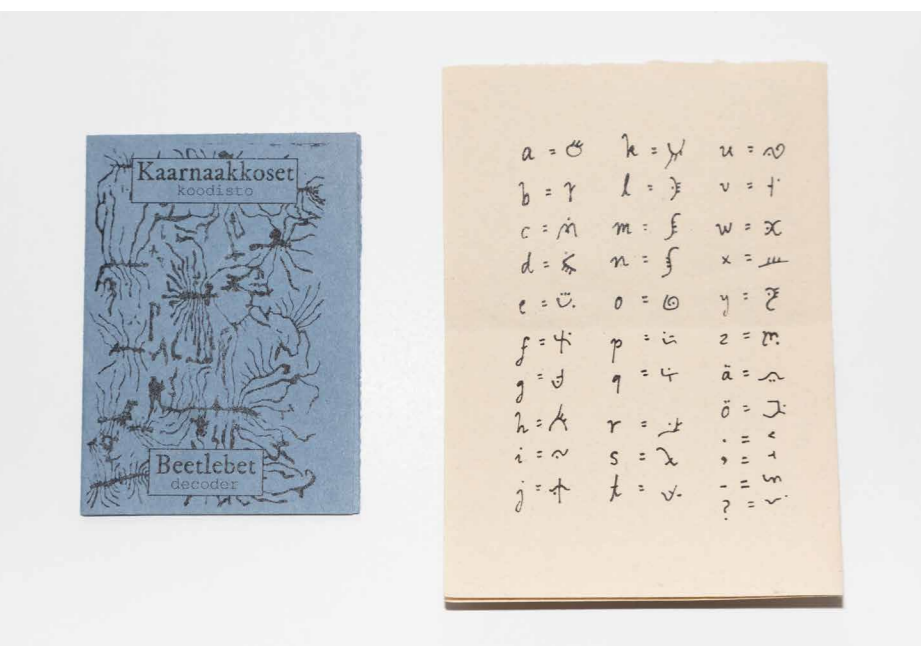 Kaarnaakkoset
koodisto
Beetlebet
decoder
a =
b =
c =
d =
e =
f =
g =
h =
i =
j =
k =
l =
m =
n =
o =
p =
q =
r =
s =
t =
u =
v =
w =
x =
y =
z =
ä =
ö =
. =
, =
- =
? =